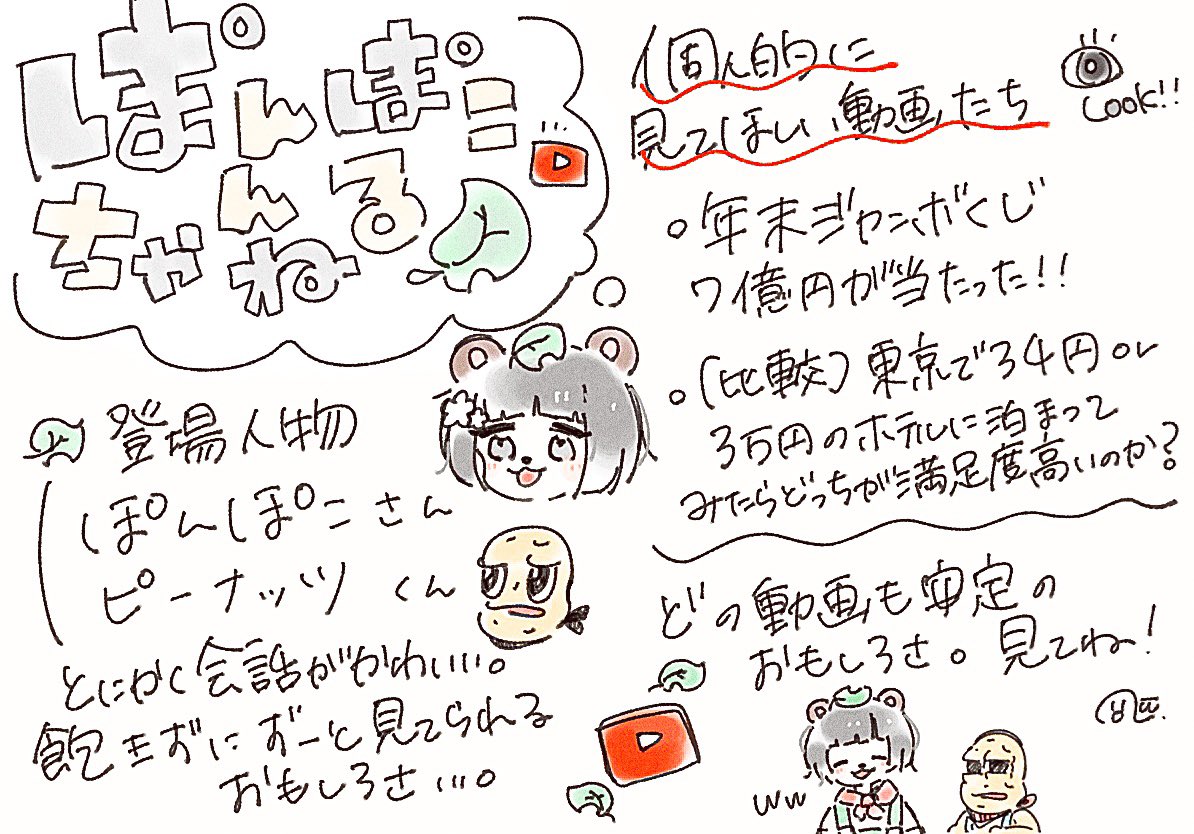 ぽんぽこ
ちゃんねる
登場人物
ぽんぽこさん
ピーナッツくん
とにかく会話がかわいい…。
飽きずにずーっと見てられる
おもしろさ…。
個人的に
見てほしい動画たち
Look!!
年末ジャンボくじ
7億円が当たった!!
(比較)東京で34円or
3万円のホテルに泊まって
みたらどっちが満足度高いのか?
どの動画も安定の
おもしろさ。見てね!
ww